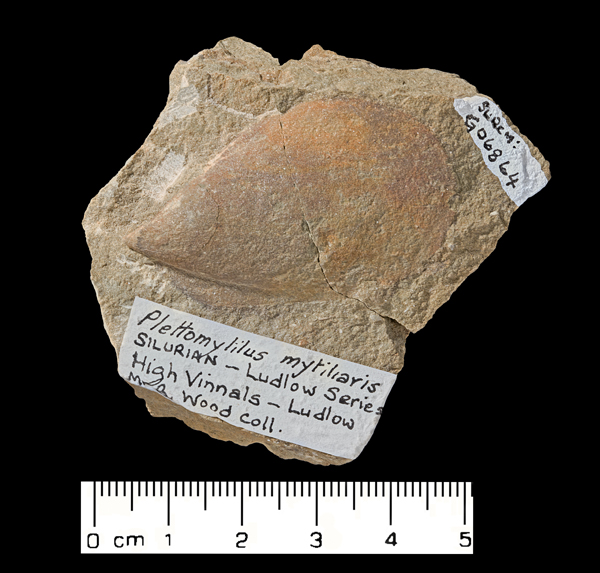 SHREM:
G06864
Plettomytilus mytiliaris
SILURIAN – Ludlow Series
High Vinnals – Ludlow
Wood Coll.
0 cm 1 2 3 4 5